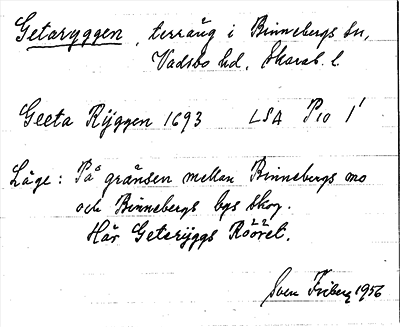 Getaryggen, terräng i Binnebergs sn,
Vadsbo hd, Skarab. l.
Geeta Ryggen 1693 LSA P10 1'
Läge: På gränsen mellan Binnebergs mo
och Binnebergs bys skog.
Här Geteryggs Rööret.
Sven Friberg 1956